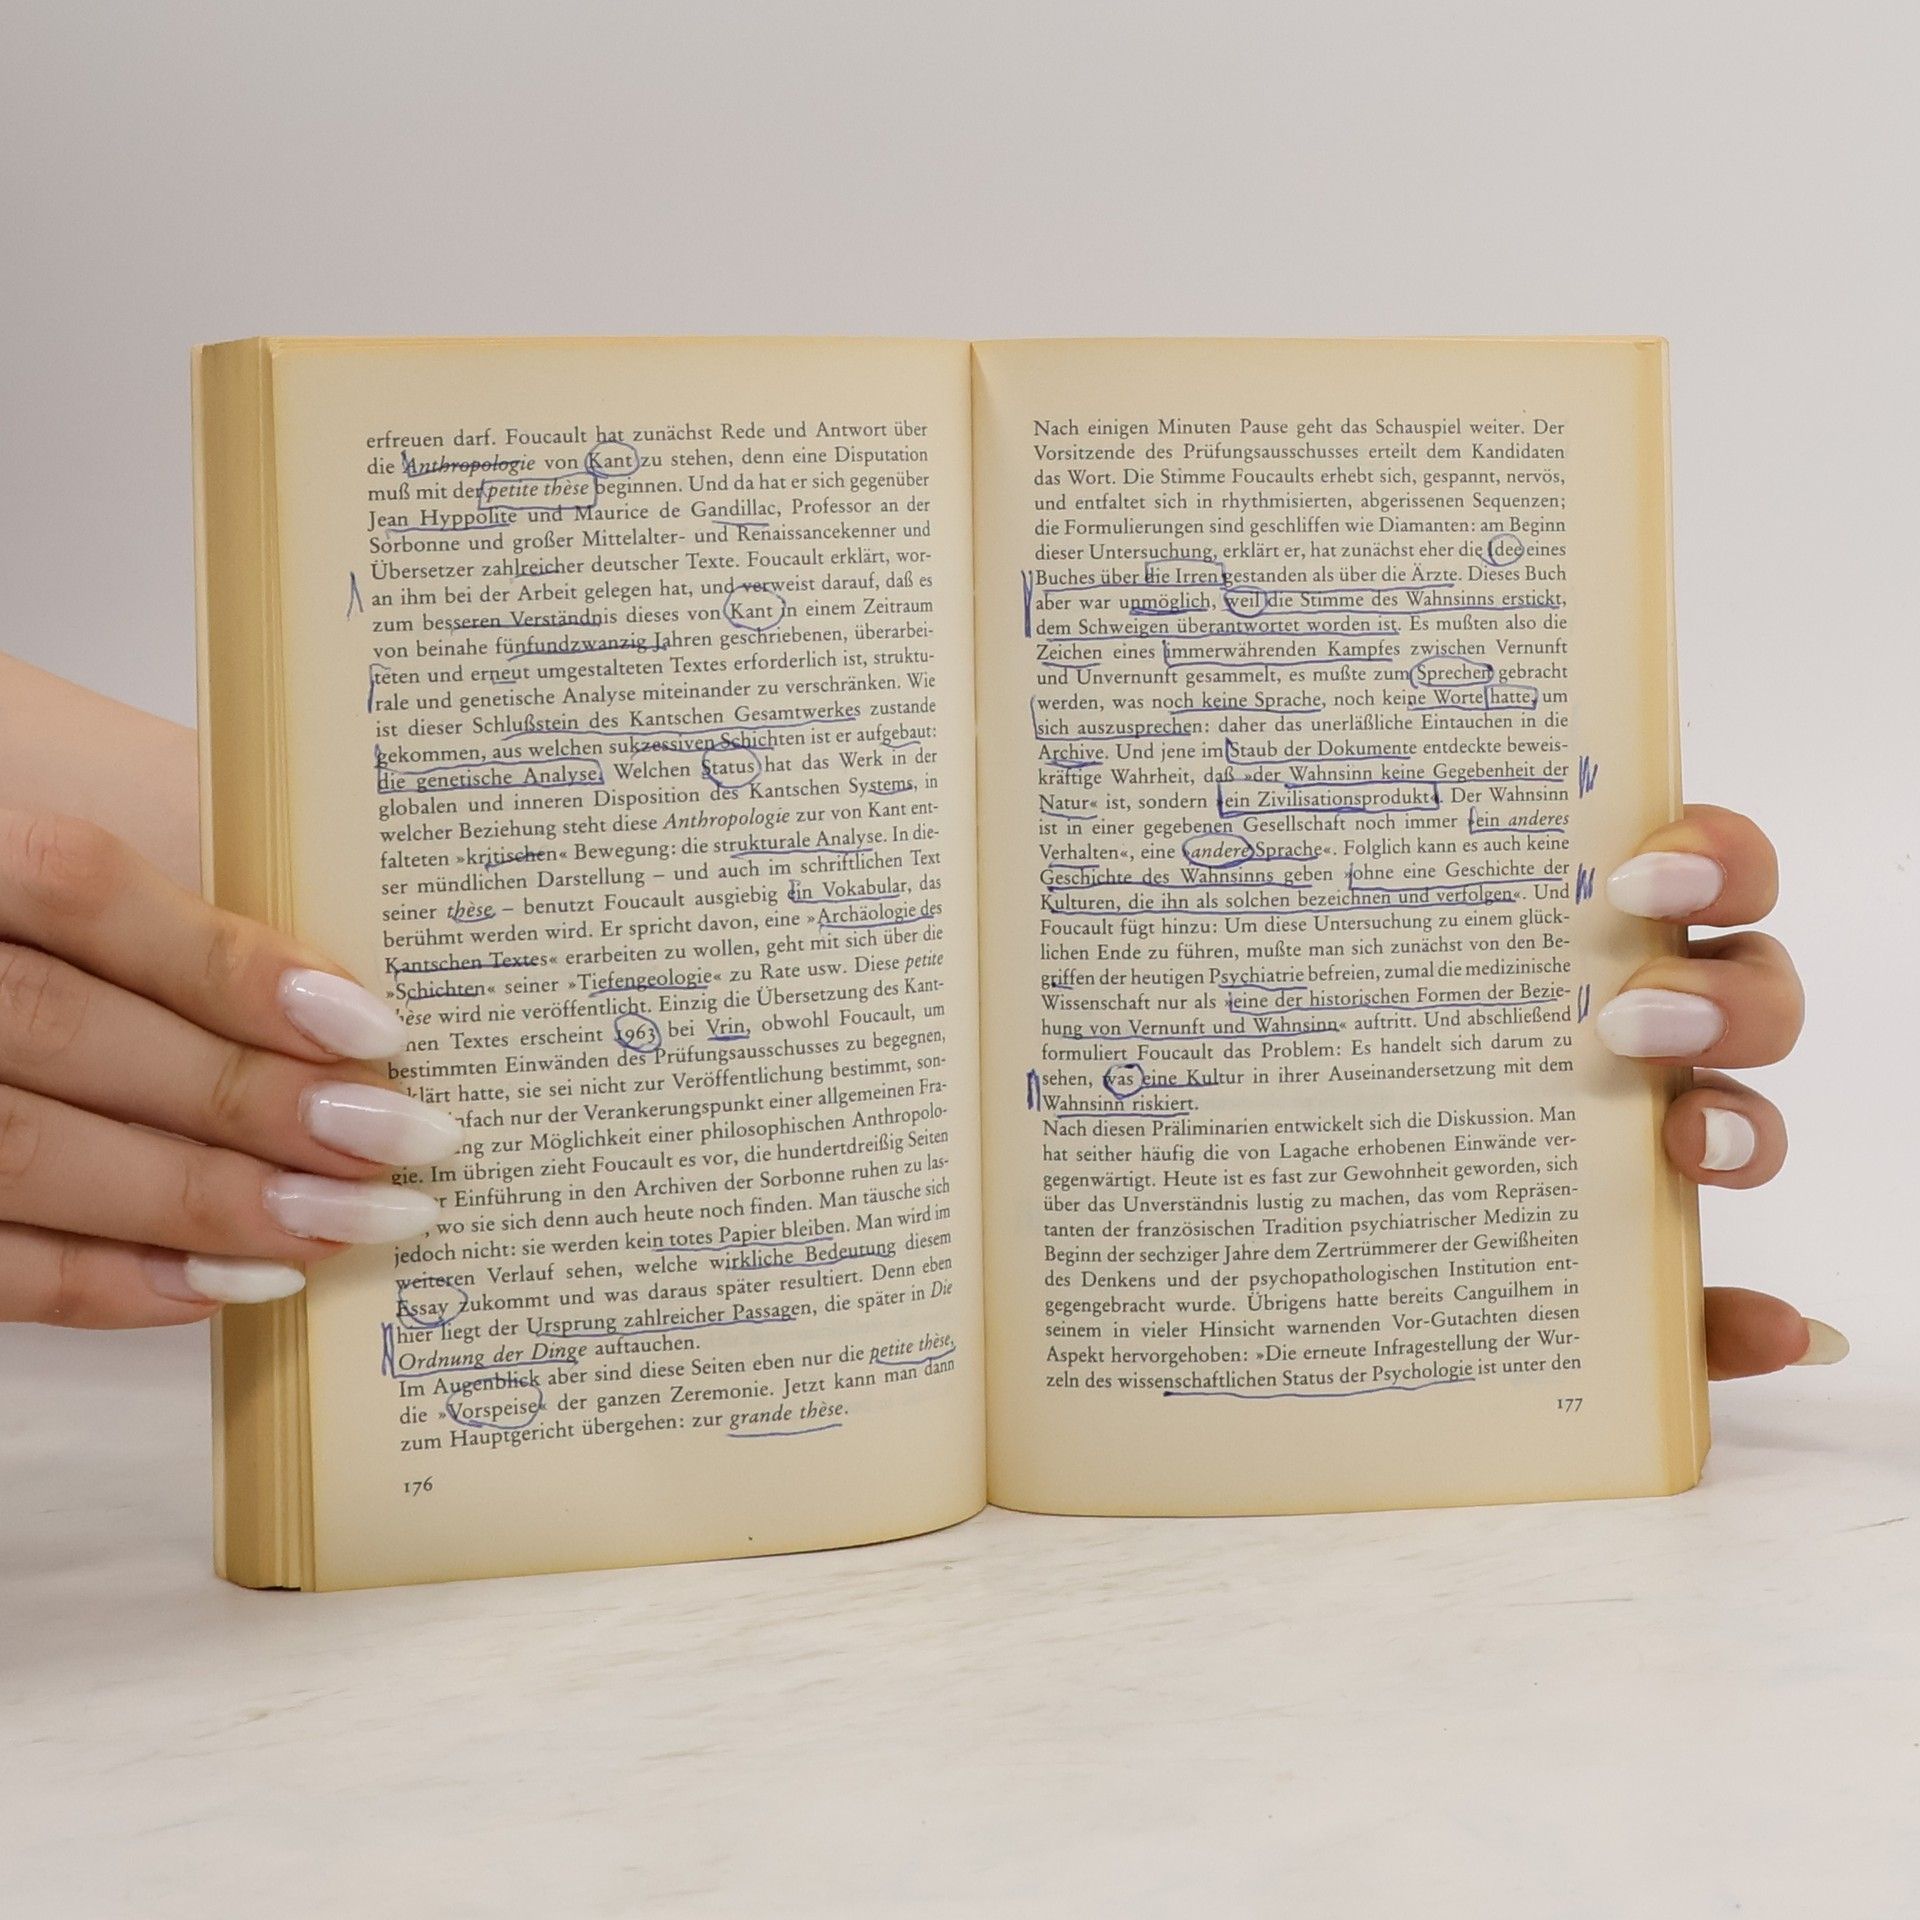 erfreuen darf. Foucault hat zunächst Rede und Antwort über
die Anthropologie von Kant zu stehen, denn eine Disputation
muß mit der petite thèse beginnen. Und da hat er sich gegenüber
Jean Hyppolite und Maurice de Gandillac, Professor an der
Sorbonne und großer Mittelalter- und Renaissancekenner und
Übersetzer zahlreicher deutscher Texte. Foucault erklärt, wor-
an ihm bei der Arbeit gelegen hat, und verweist darauf, daß es
zum besseren Verständnis dieses von Kant in einem Zeitraum
von beinahe fünfundzwanzig Jahren geschriebenen, überarbei-
teten und erneut umgestalteten Textes erforderlich ist, struktu-
rale und genetische Analyse miteinander zu verschränken. Wie
ist dieser Schlußstein des Kantschen Gesamtwerkes zustande
gekommen, aus welchen sukzessiven Schichten ist er aufgebaut:
die genetische Analyse. Welchen Status hat das Werk in der
globalen und inneren Disposition des Kantschen Systems, in
welcher Beziehung steht diese Anthropologie zur von Kant ent-
falteten »kritischen« Bewegung: die strukturale Analyse. In die-
ser mündlichen Darstellung – und auch im schriftlichen Text
seiner thèse – benutzt Foucault ausgiebig ein Vokabular, das
berühmt werden wird. Er spricht davon, eine »Archäologie des
Kantschen Textes« erarbeiten zu wollen, geht mit sich über die
»Schichten« seiner »Tiefengeologie« zu Rate usw. Diese petite
hèse wird nie veröffentlicht. Einzig die Übersetzung des Kant-
hen Textes erscheint 1963 bei Vrin, obwohl Foucault, um
bestimmten Einwänden des Prüfungsausschusses zu begegnen,
klärt hatte, sie sei nicht zur Veröffentlichung bestimmt, son-
nfach nur der Verankerungspunkt einer allgemeinen Fra-
ng zur Möglichkeit einer philosophischen Anthropolo-
gie. Im übrigen zieht Foucault es vor, die hundertdreißig Seiten
r Einführung in den Archiven der Sorbonne ruhen zu las-
, wo sie sich denn auch heute noch finden. Man täusche sich
jedoch nicht: sie werden kein totes Papier bleiben. Man wird im
weiteren Verlauf sehen, welche wirkliche Bedeutung diesem
Essay zukommt und was daraus später resultiert. Denn eben
hier liegt der Ursprung zahlreicher Passagen, die später in Die
Ordnung der Dinge auftauchen.
Im Augenblick aber sind diese Seiten eben nur die petite thèse,
die »Vorspeise« der ganzen Zeremonie. Jetzt kann man dann
zum Hauptgericht übergehen: zur grande thèse.
176
Nach einigen Minuten Pause geht das Schauspiel weiter. Der
Vorsitzende des Prüfungsausschusses erteilt dem Kandidaten
das Wort. Die Stimme Foucaults erhebt sich, gespannt, nervös,
und entfaltet sich in rhythmisierten, abgerissenen Sequenzen;
die Formulierungen sind geschliffen wie Diamanten: am Beginn
dieser Untersuchung, erklärt er, hat zunächst eher die Idee eines
Buches über die Irren gestanden als über die Ärzte. Dieses Buch
aber war unmöglich, weil die Stimme des Wahnsinns erstickt,
dem Schweigen überantwortet worden ist. Es mußten also die
Zeichen eines immerwährenden Kampfes zwischen Vernunft
und Unvernunft gesammelt, es mußte zum Sprechen gebracht
werden, was noch keine Sprache, noch keine Worte hatte, um
sich auszusprechen: daher das unerläßliche Eintauchen in die
Archive. Und jene im Staub der Dokumente entdeckte beweis-
kräftige Wahrheit, daß »der Wahnsinn keine Gegebenheit der
Natur« ist, sondern »ein Zivilisationsprodukt«. Der Wahnsinn
ist in einer gegebenen Gesellschaft noch immer »ein anderes
Verhalten«, eine »andere Sprache«. Folglich kann es auch keine
Geschichte des Wahnsinns geben »ohne eine Geschichte der
Kulturen, die ihn als solchen bezeichnen und verfolgen«. Und
Foucault fügt hinzu: Um diese Untersuchung zu einem glück-
lichen Ende zu führen, mußte man sich zunächst von den Be-
griffen der heutigen Psychiatrie befreien, zumal die medizinische
Wissenschaft nur als »eine der historischen Formen der Bezie-
hung von Vernunft und Wahnsinn« auftritt. Und abschließend
formuliert Foucault das Problem: Es handelt sich darum zu
sehen, was eine Kultur in ihrer Auseinandersetzung mit dem
Wahnsinn riskiert.
Nach diesen Präliminarien entwickelt sich die Diskussion. Man
hat seither häufig die von Lagache erhobenen Einwände ver-
gegenwärtigt. Heute ist es fast zur Gewohnheit geworden, sich
über das Unverständnis lustig zu machen, das vom Repräsen-
tanten der französischen Tradition psychiatrischer Medizin zu
Beginn der sechziger Jahre dem Zertrümmerer der Gewißheiten
des Denkens und der psychopathologischen Institution ent-
gegengebracht wurde. Übrigens hatte bereits Canguilhem in
seinem in vieler Hinsicht warnenden Vor-Gutachten diesen
Aspekt hervorgehoben: »Die erneute Infragestellung der Wur-
zeln des wissenschaftlichen Status der Psychologie ist unter den
177